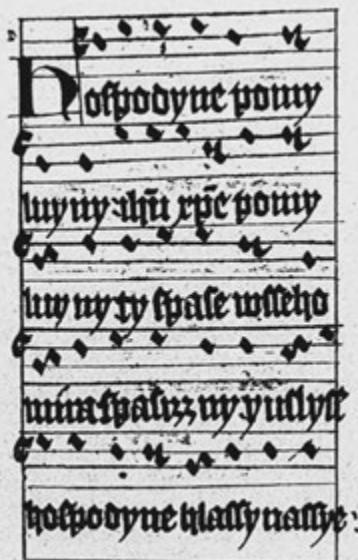 Hospodyne pomy
luy ny · ihu xpe pomy
luy ny ty spase wsseho
mira spasizz ny y uslyss
hospodyne hlassy nassye :